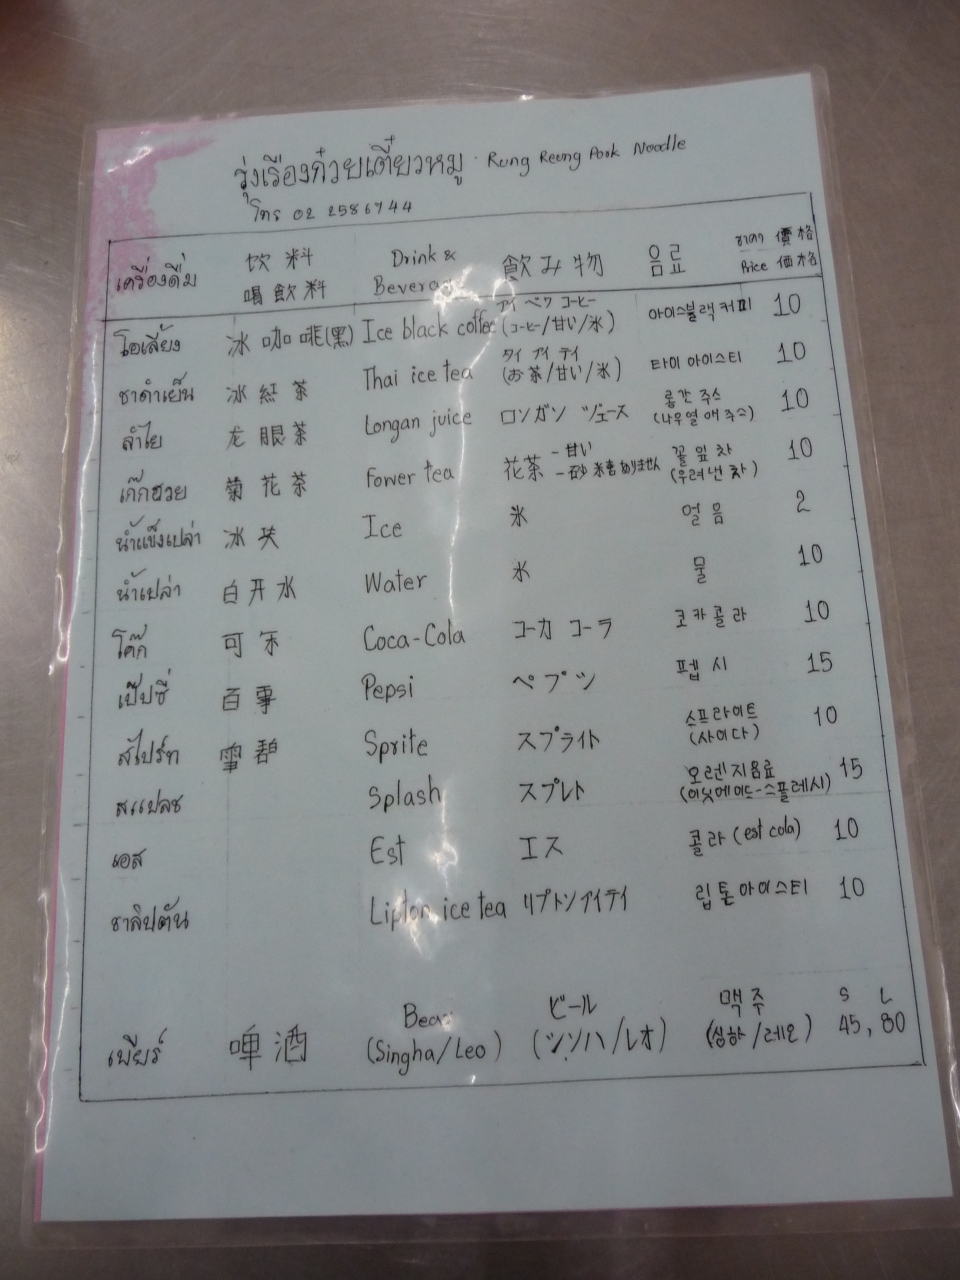 รุ่งเรืองก๋วยเตี๋ยวหมู . Rung Reung Pork Noodle
โทร 02 2586744
เครื่องดื่ม 饮料 喝飲料 Drink & Beverage 飲み物 음료 ราคา 價格 Price 価格
โอเลี้ยง 冰咖啡(黑) Ice black coffee アイ ベク コーヒー (コーヒー/甘い/氷) 아이스블랙커피 10
ชาดำเย็น 冰紅茶 Thai ice tea タイ アイ テイ (お茶/甘い/氷) 타이 아이스티 10
ลำไย 龙眼茶 Longan juice ロンガン ヅュース 롱간 주스 10
เก๊กฮวย 菊花茶 Fower tea 花茶 - 甘い - 砂糖ありません 꽃잎차 (우려낸차) 10
น้ำแข็งเปล่า 冰 Ice 氷 얼음 2
น้ำเปล่า 白开水 Water 水 물 10
โค๊ก 可 Coca-Cola コーカ コーラ 코카콜라 10
เป๊ปซี่ 百事 Pepsi ペプツ 펩시 15
สไปร์ท 雪碧 Sprite スプライト 스프라이트 (사이다) 10
สแปลช Splash スプレト 오렌지음료 (미닛메이드-스플레시) 15
เอส Est エス 콜라 (est cola) 10
ชาลิปตัน Lipton ice tea リプトンアイテイ 립톤아이스티 10
เบียร์ 啤酒 Bear (Singha/Leo) ビール (シンハ/レオ) 맥주 (싱하/레오) S L 45, 80